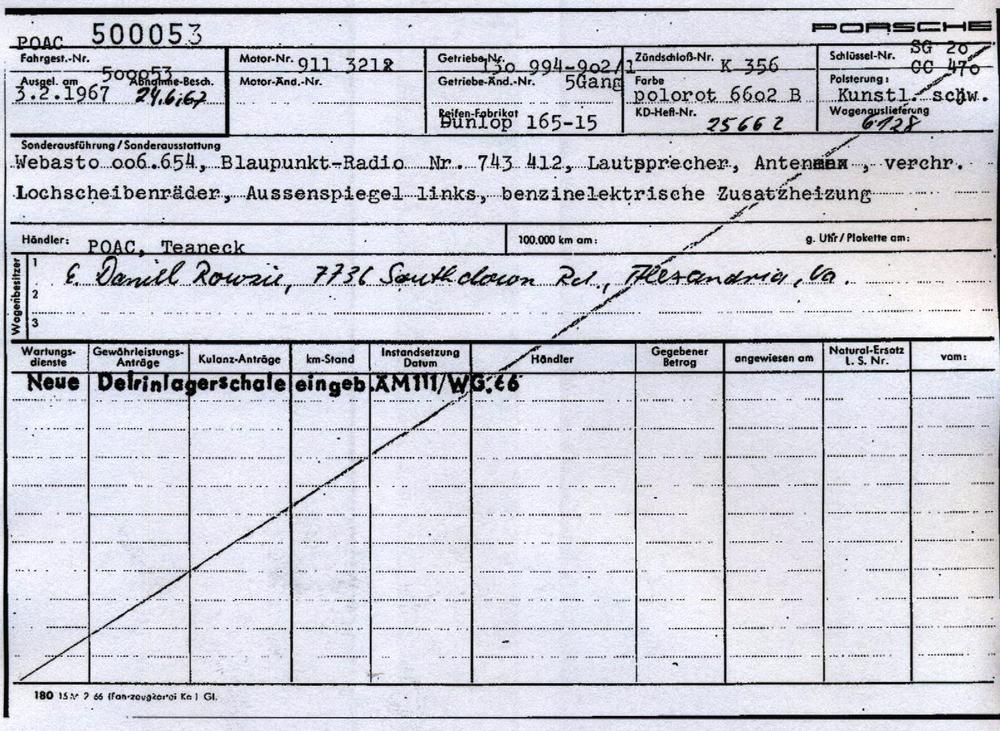 POAC 500053
PORSCHE
Fahrgest.-Nr. 500053
Ausgel. am 3.2.1967
Abnahme-Besch. 24.6.67
Motor-Nr. 911 3212
Motor-Änd.-Nr.
Getriebe-Nr. 130 994-902/1
Getriebe-Änd.-Nr. 5Gang
Reifen-Fabrikat Dunlop 165-15
Zündschloß-Nr. K 356
Farbe polorot 6602 B
KD-Heft-Nr. 25662
Schlüssel-Nr. SG 20
CC 470
Polsterung: Kunstl. schw.
Wagenauslieferung 6128
Sonderausführung/Sonderausstattung
Webasto 006.654, Blaupunkt-Radio Nr. 743 412, Lautpprecher, Antenne, verchr.
Lochscheibenräder, Aussenspiegel links, benzinelektrische Zusatzheizung
Händler: POAC, Teaneck
100.000 km am:
g. Uhr/Plakette am:
Wagenbesitzer
1 E. Daniel Rowzie, 7736 Southdown Rd., Alexandria, Va.
2
3
Wartungs-dienste Gewährleistungs-Anträge Kulanz-Anträge km-Stand Instandsetzung Datum Händler Gegebener Betrag angewiesen am Natural-Ersatz L. S. Nr. vom:
Neue Delrinlagerschale eingeb. ÄM111/WG.66
180 15 2 66 Gl.